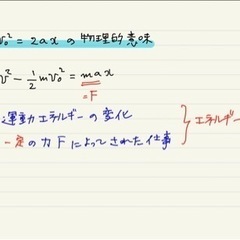 v₀² = 2ax の物理的意味
v² - 1/2 mv₀² = max
= F
運動エネルギーの変化
一定の力Fによってされた仕事
エネルギー